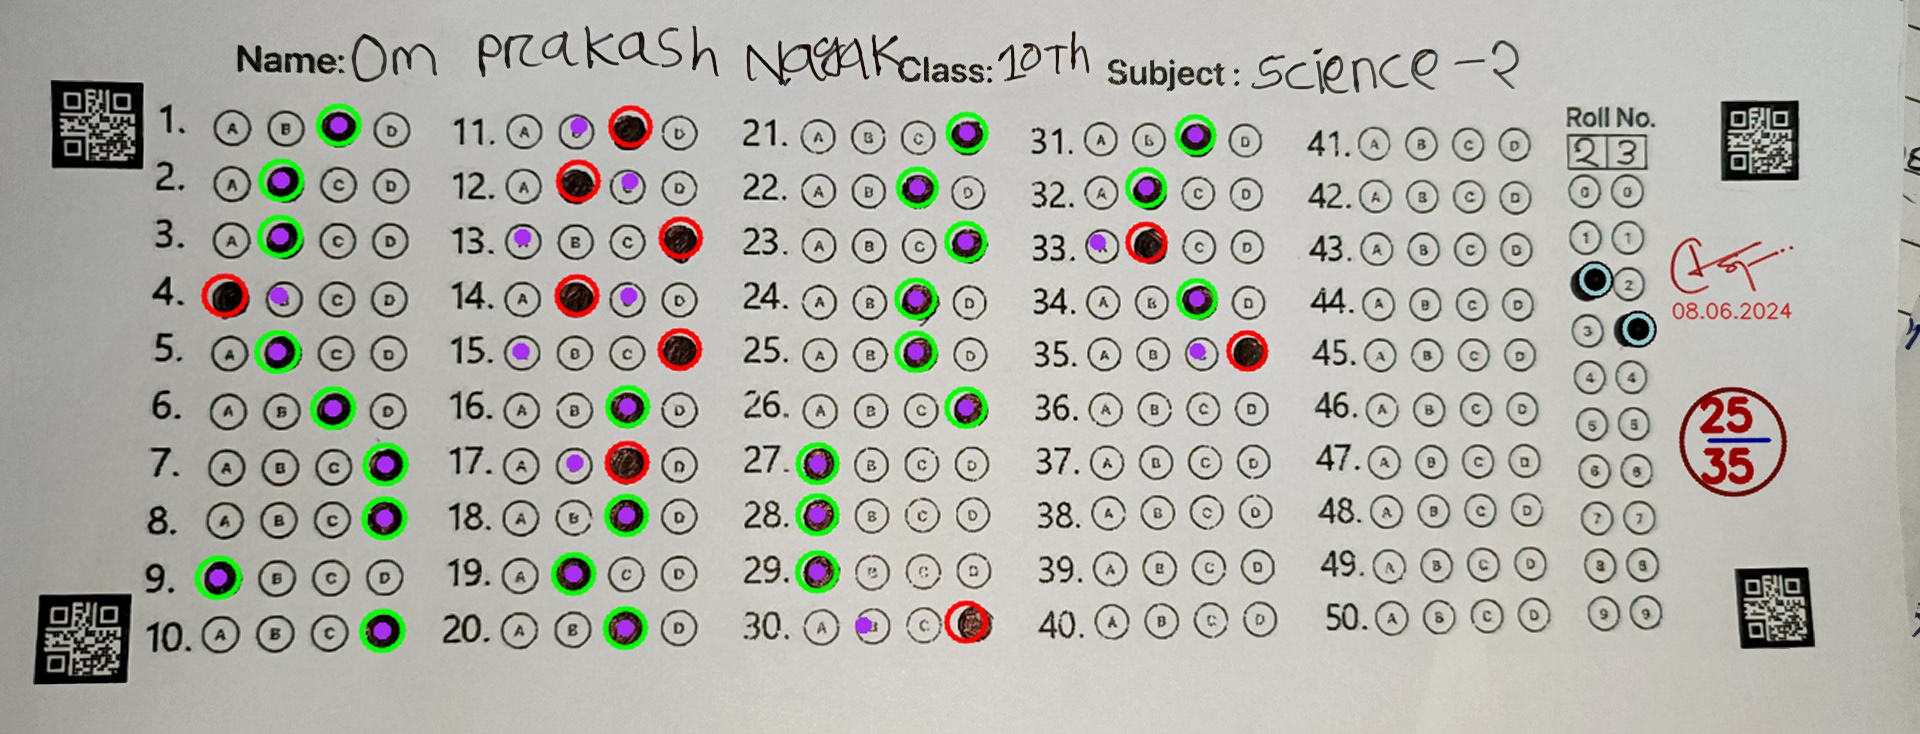 Name: Om Prakash Nagar Class: 10th Subject: Science-2
Roll No.
23
1. A B D
2. A C D
3. A C D
4. C D
5. A C D
6. A B D
7. A B C
8. A B C
9. B C D
10. A B C
11. A D
12. A D
13. B C
14. A D
15. B C
16. A B D
17. A D
18. A B D
19. A C D
20. A B D
21. A B C
22. A B D
23. A B C
24. A B D
25. A B D
26. A B C
27. B C D
28. B C D
29. B C D
30. A B C
31. A B D
32. A C D
33. C D
34. A B D
35. A B
36. A B C D
37. A B C D
38. A B C D
39. A B C D
40. A B C D
41. A B C D
42. A B C D
43. A B C D
44. A B C D
45. A B C D
46. A B C D
47. A B C D
48. A B C D
49. A B C D
50. A B C D
0 0
1 1
2
3
4 4
5 5
6 6
7 7
8 8
9 9
08.06.2024
25
35